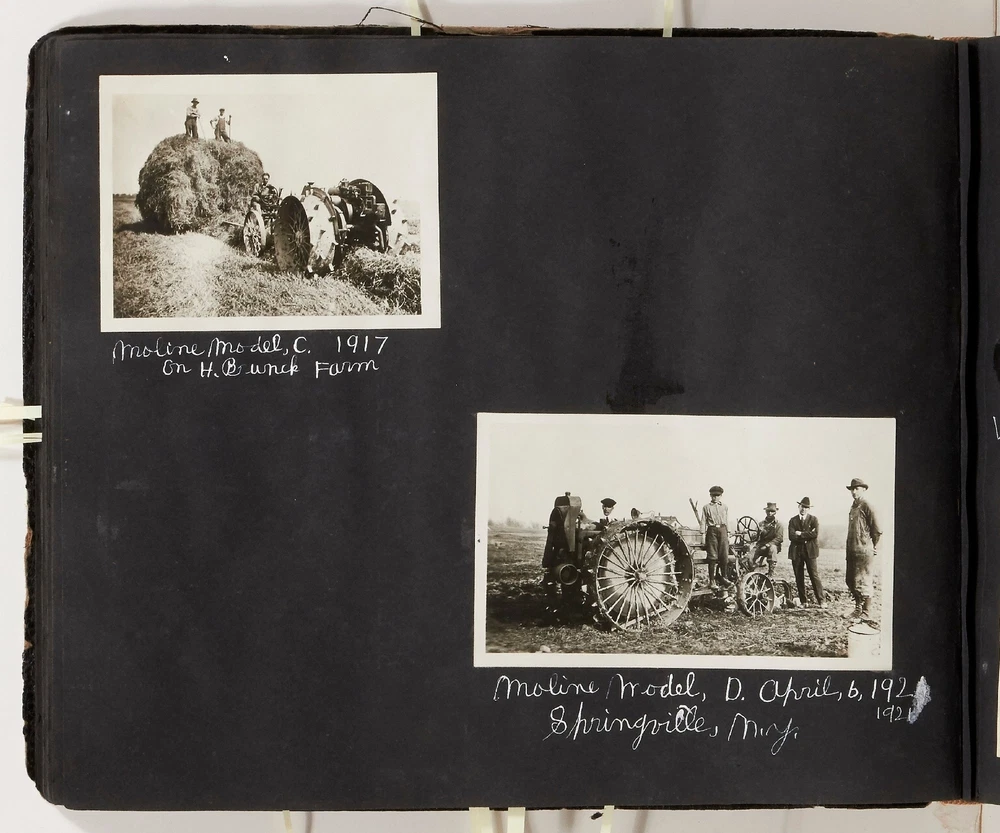 Moline Model, C. 1917
On H. Bunck Farm
Moline Model, D. April, 6, 192
1921
Springville, N.Y.